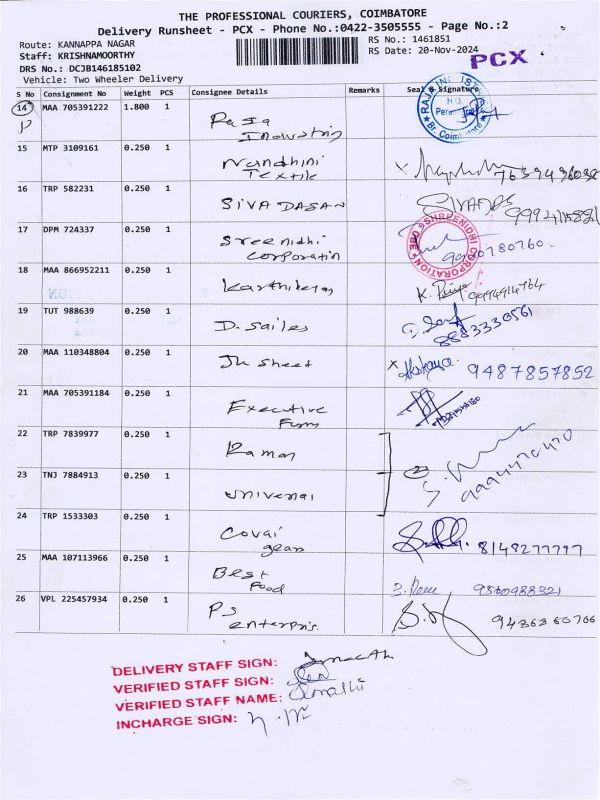 THE PROFESSIONAL COURIERS, COIMBATORE
Delivery Runsheet - PCX - Phone No.:0422-3505555 - Page No.:2
Route: KANNAPPA NAGAR
RS No.: 1461851
Staff: KRISHNAMOORTHY
RS Date: 20-Nov-2024
PCX
DRS No.: DCJB146185102
Vehicle: Two Wheeler Delivery
S No Consignment No Weight PCS Consignee Details Remarks Seal & Signature
14 MAA 705391222 1.800 1 Raja
P
15 MTP 3109161 0.250 1 Nandhini Textile
16 TRP 582231 0.250 1 SIVA DASAN
17 DPM 724337 0.250 1 Sreenidhi Corporation
SHREENIDHI CORPORATION
18 MAA 866952211 0.250 1 Karthikeyan K. Priya 9994914764
19 TUT 988639 0.250 1 D. Sailes 8883330561
20 MAA 110348804 0.250 1 Jk Sheet Akshaya 9487857852
21 MAA 705391184 0.250 1 Executive Firm
22 TRP 7839977 0.250 1 Raman
23 TNJ 7884913 0.250 1 Universal
24 TRP 1533303 0.250 1 Covai gears 8148277797
25 MAA 107113966 0.250 1 Best Food
26 VPL 225457934 0.250 1 PS enterpris. 9436360766
DELIVERY STAFF SIGN:
VERIFIED STAFF SIGN:
VERIFIED STAFF NAME:
INCHARGE SIGN: